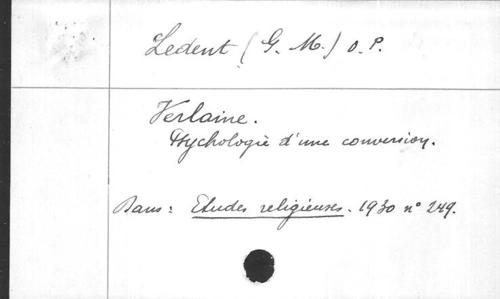 Ledent (G. M.) O. P.
Verlaine.
Psychologie d'une conversion.
Dans : Etudes religieuses. 1930 n° 249.